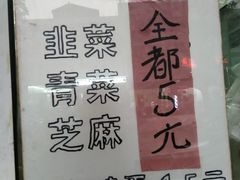 韭菜
青菜
芝麻
全都5元